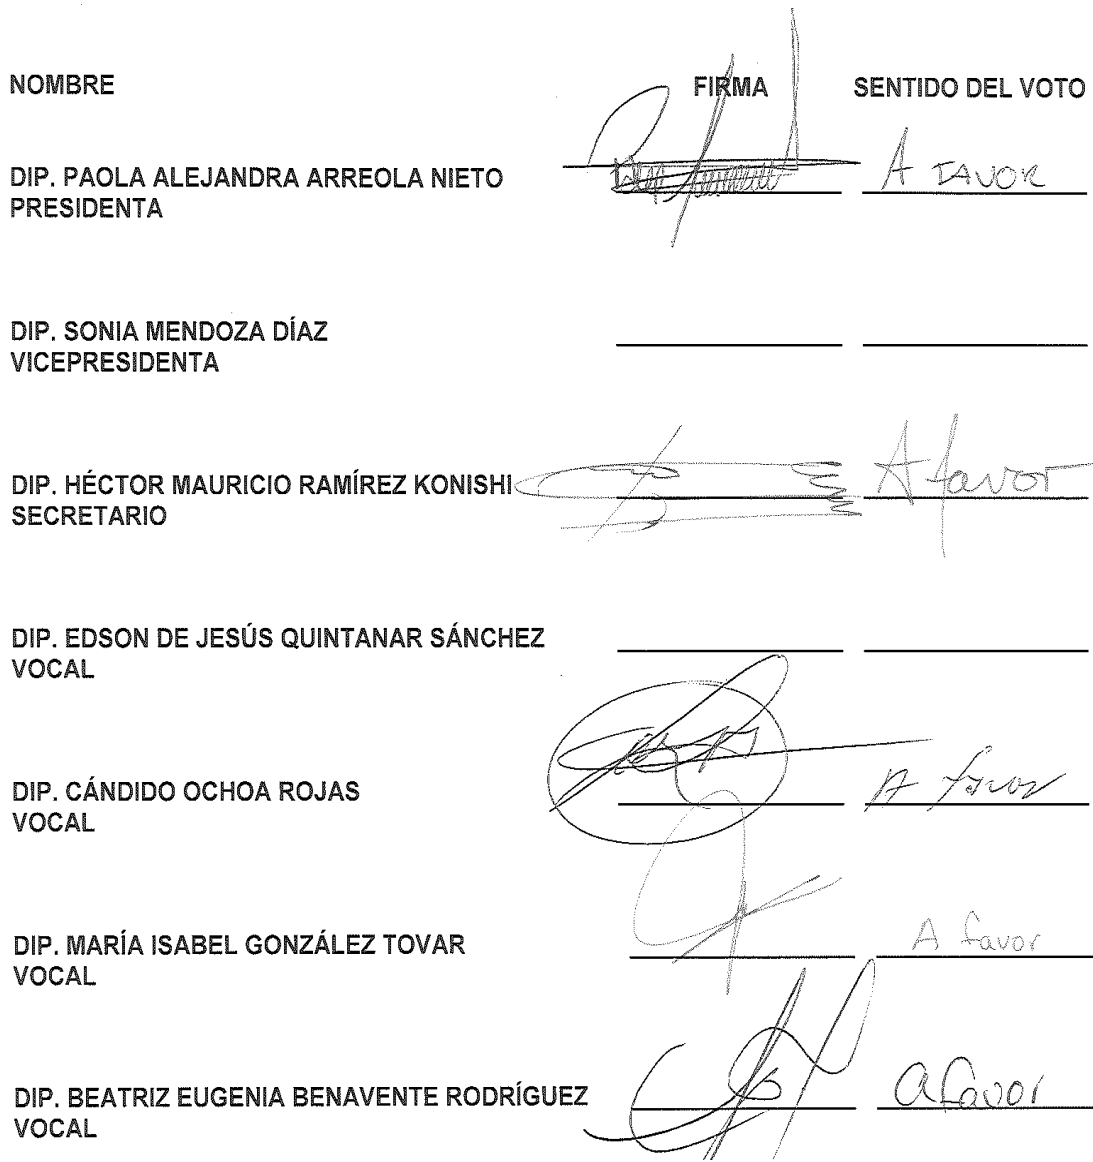 NOMBRE FIRMA SENTIDO DEL VOTO
DIP. PAOLA ALEJANDRA ARREOLA NIETO A FAVOR
PRESIDENTA
DIP. SONIA MENDOZA DÍAZ
VICEPRESIDENTA
DIP. HÉCTOR MAURICIO RAMÍREZ KONISHI A favor
SECRETARIO
DIP. EDSON DE JESÚS QUINTANAR SÁNCHEZ
VOCAL
DIP. CÁNDIDO OCHOA ROJAS A favor
VOCAL
DIP. MARÍA ISABEL GONZÁLEZ TOVAR A favor
VOCAL
DIP. BEATRIZ EUGENIA BENAVENTE RODRÍGUEZ a favor
VOCAL